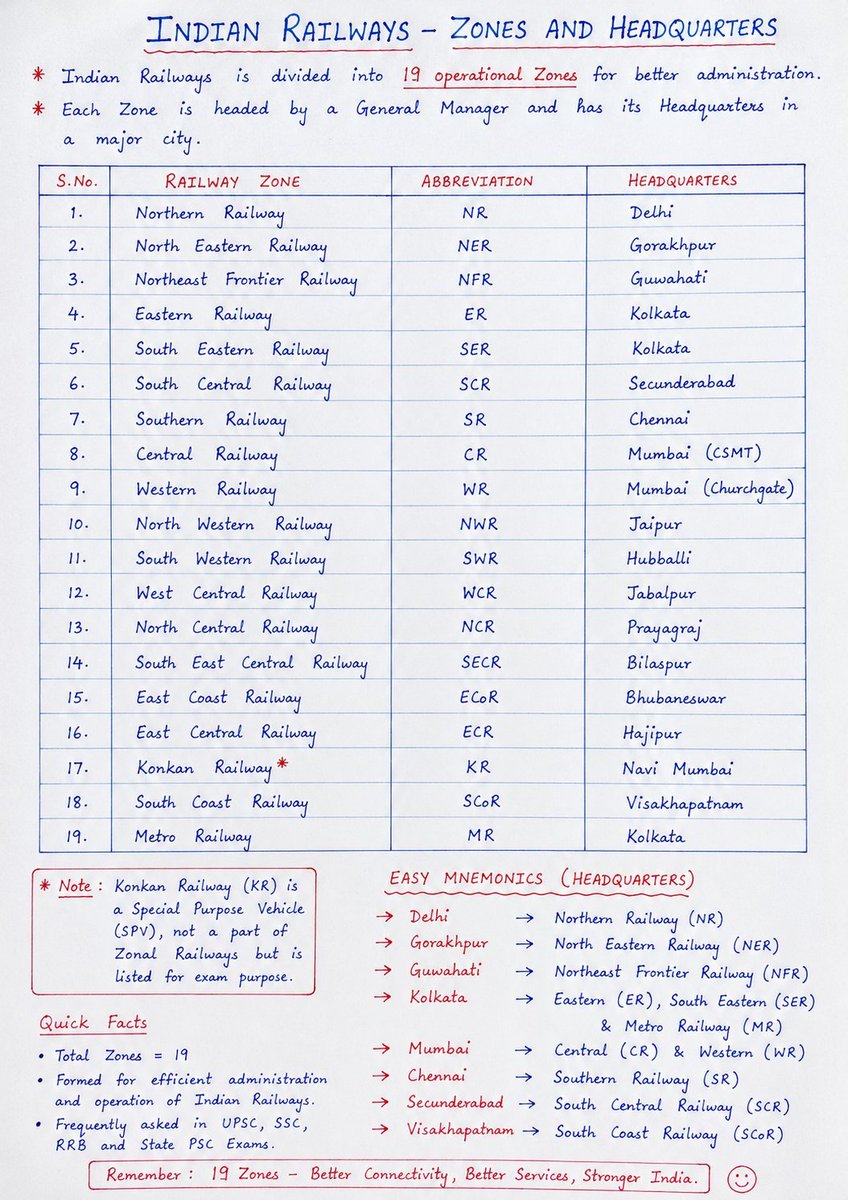 INDIAN RAILWAYS – ZONES AND HEADQUARTERS
* Indian Railways is divided into 19 operational Zones for better administration.
* Each Zone is headed by a General Manager and has its Headquarters in
a major city.
S.No. RAILWAY ZONE ABBREVIATION HEADQUARTERS
1. Northern Railway NR Delhi
2. North Eastern Railway NER Gorakhpur
3. Northeast Frontier Railway NFR Guwahati
4. Eastern Railway ER Kolkata
5. South Eastern Railway SER Kolkata
6. South Central Railway SCR Secunderabad
7. Southern Railway SR Chennai
8. Central Railway CR Mumbai (CSMT)
9. Western Railway WR Mumbai (Churchgate)
10. North Western Railway NWR Jaipur
11. South Western Railway SWR Hubballi
12. West Central Railway WCR Jabalpur
13. North Central Railway NCR Prayagraj
14. South East Central Railway SECR Bilaspur
15. East Coast Railway ECoR Bhubaneswar
16. East Central Railway ECR Hajipur
17. Konkan Railway* KR Navi Mumbai
18. South Coast Railway SCoR Visakhapatnam
19. Metro Railway MR Kolkata
* Note : Konkan Railway (KR) is
a Special Purpose Vehicle
(SPV), not a part of
Zonal Railways but is
listed for exam purpose.
Quick Facts
• Total Zones = 19
• Formed for efficient administration
and operation of Indian Railways.
• Frequently asked in UPSC, SSC,
RRB and State PSC Exams.
EASY MNEMONICS (HEADQUARTERS)
→ Delhi → Northern Railway (NR)
→ Gorakhpur → North Eastern Railway (NER)
→ Guwahati → Northeast Frontier Railway (NFR)
→ Kolkata → Eastern (ER), South Eastern (SER)
& Metro Railway (MR)
→ Mumbai → Central (CR) & Western (WR)
→ Chennai → Southern Railway (SR)
→ Secunderabad → South Central Railway (SCR)
→ Visakhapatnam → South Coast Railway (SCoR)
Remember : 19 Zones – Better Connectivity, Better Services, Stronger India.